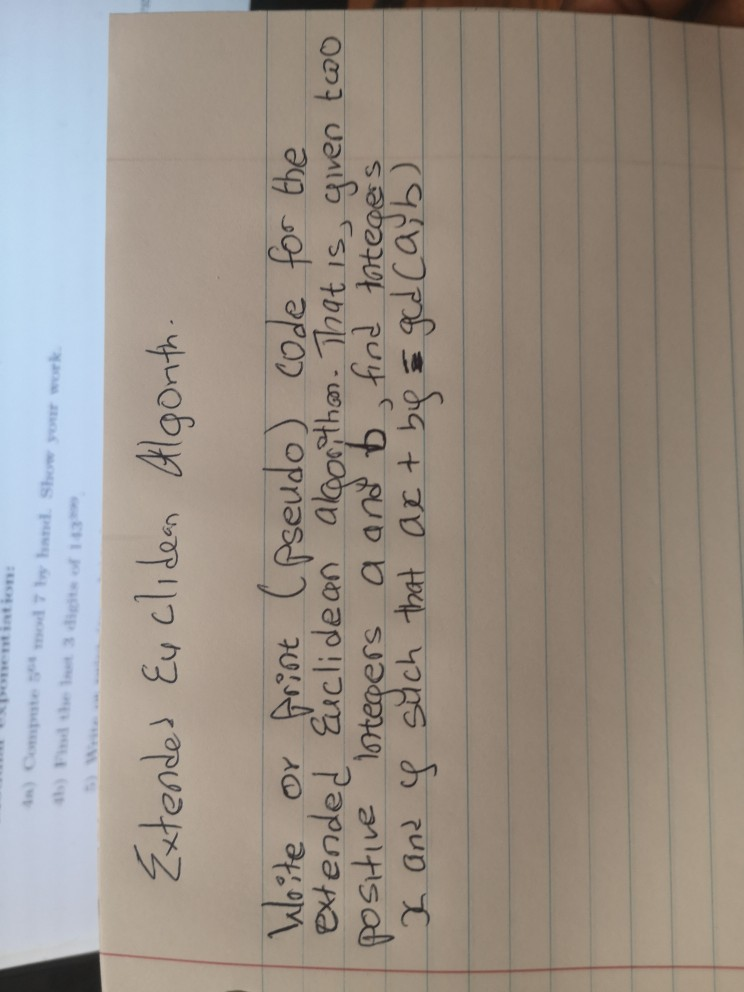 4a) Compute 5⁶⁴ mod 7 by hand. Show your work.
4b) Find the last 3 digits of
5) Write
Extended Euclidean Algorith.
Write or print (pseudo) code for the
extended Euclidean algorithm. That is, given two
positive integers a and b, find integers
x and y such that ax + by = gcd(a,b)